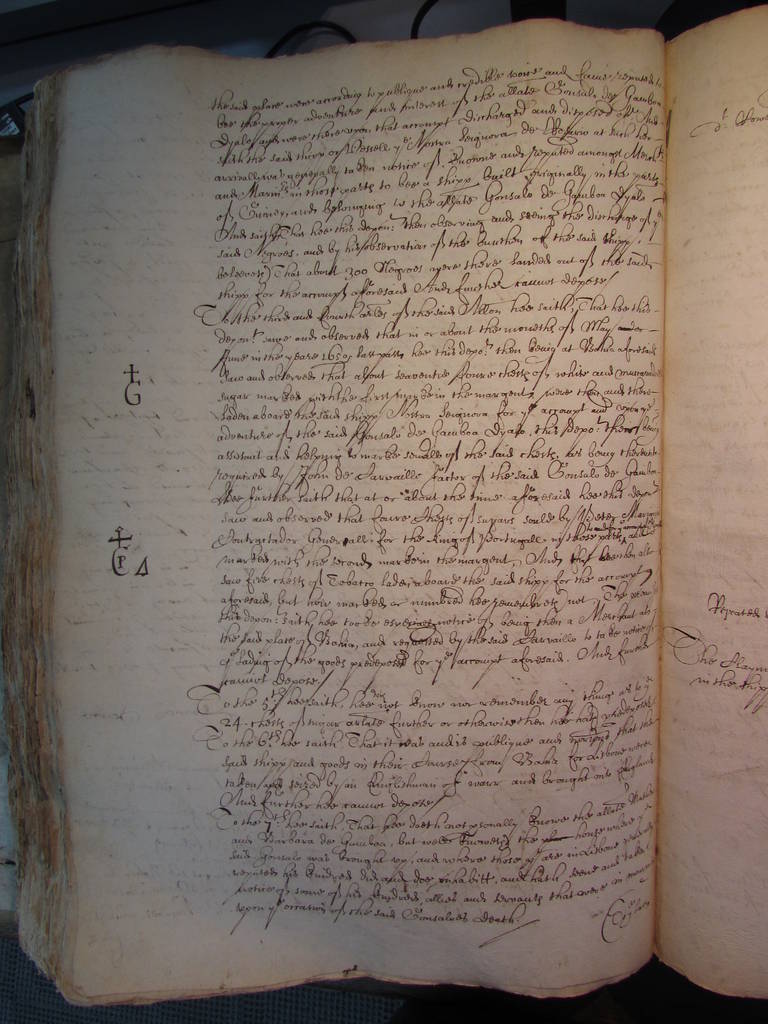 the said place were according to publique and credible voice and fame reputed to
bee the proper adventure and interest of the allate Gonsalo de Gamboa
Dyalo and were there upon that accompt discharged and disposed of. And
saith the said shipp or vessell ye Nostra Seignora de at such her
arrivall was generally taken notice of, knowne and reputed amongst Merchts
and Marinrs in those parts to bee a shipp built originally in the parts
of and belonging to the allate Gonsalo de Gamboa Dyalo
And saith That hee this depont then observing and seeing the discharge of ye
said Negroes, and by his observation of the burthen of the said shipp,
beleeveth That about 300 Negroes were there landed out of the said
shipp for the accompt aforesaid And further cannot depose/
To the third and fourth arles of the said Allon hee saith, That hee this
depont sawe and observed that in or about the moneths of May and or
June in the yeare last past, hee this depot then being at Bahia aforesaid
saw and observed that about seaventie foure chests of white and muscavado
sugar marked with the first marke in the margent, were then and there
laden aboard the said shipp Nostra Seignora for ye accompt and upon ye
adventure of the said Gonsalo de Gamboa Dyalo, this depot then being
assistant and helping to marke severall of the said chests, as being thereunto
required by John de Carvaille factor of the said Gonsalo de Gamboa
Hee further saith that at or about the time aforesaid hee this depont
saw and observed that foure chests of sugars sould by Peter
Contractador Generall for the King of Portugall in those parts
marked with the second marke in the margent, And hee then also
saw five chests of Tobacco laden aboard the said shipp for the accompt
aforesaid, but how marked or numbred hee remembreth not, The
this depont saith hee tooke especiall notice of being then a Merchant at
the said place of Bahia, and requested by the said Carvaille to take notice of
ye lading of the goods predeposed for ye accompt aforesaid. And further
cannot depose/
To the 5th hee saith, hee doth not know nor remember any thing as to ye
24 chests of sugar arlate further or otherwise then hee hath predeposed
To the 6th hee saith That it was and is publique and notorious that the
said shipp and goods in their course from Bahia for Lisbone were
taken and seized by an Englishman of warr and brought into England
And further hee cannot depose/
To the 7th hee saith, That hee doeth not psonally knowe the allate
and Barbara de Gamboa, but well knoweth the house where ye
said Gonsalo was brought up, and where those yt are in Lisbone
reputed his kindred did and doe inhabitt, and hath seene and taken
notice of some of his kindred, allies and servants that were in
upon ye occasion of the said Gonsalves death.
G
C P Δ
Repeated
The
in the shipp